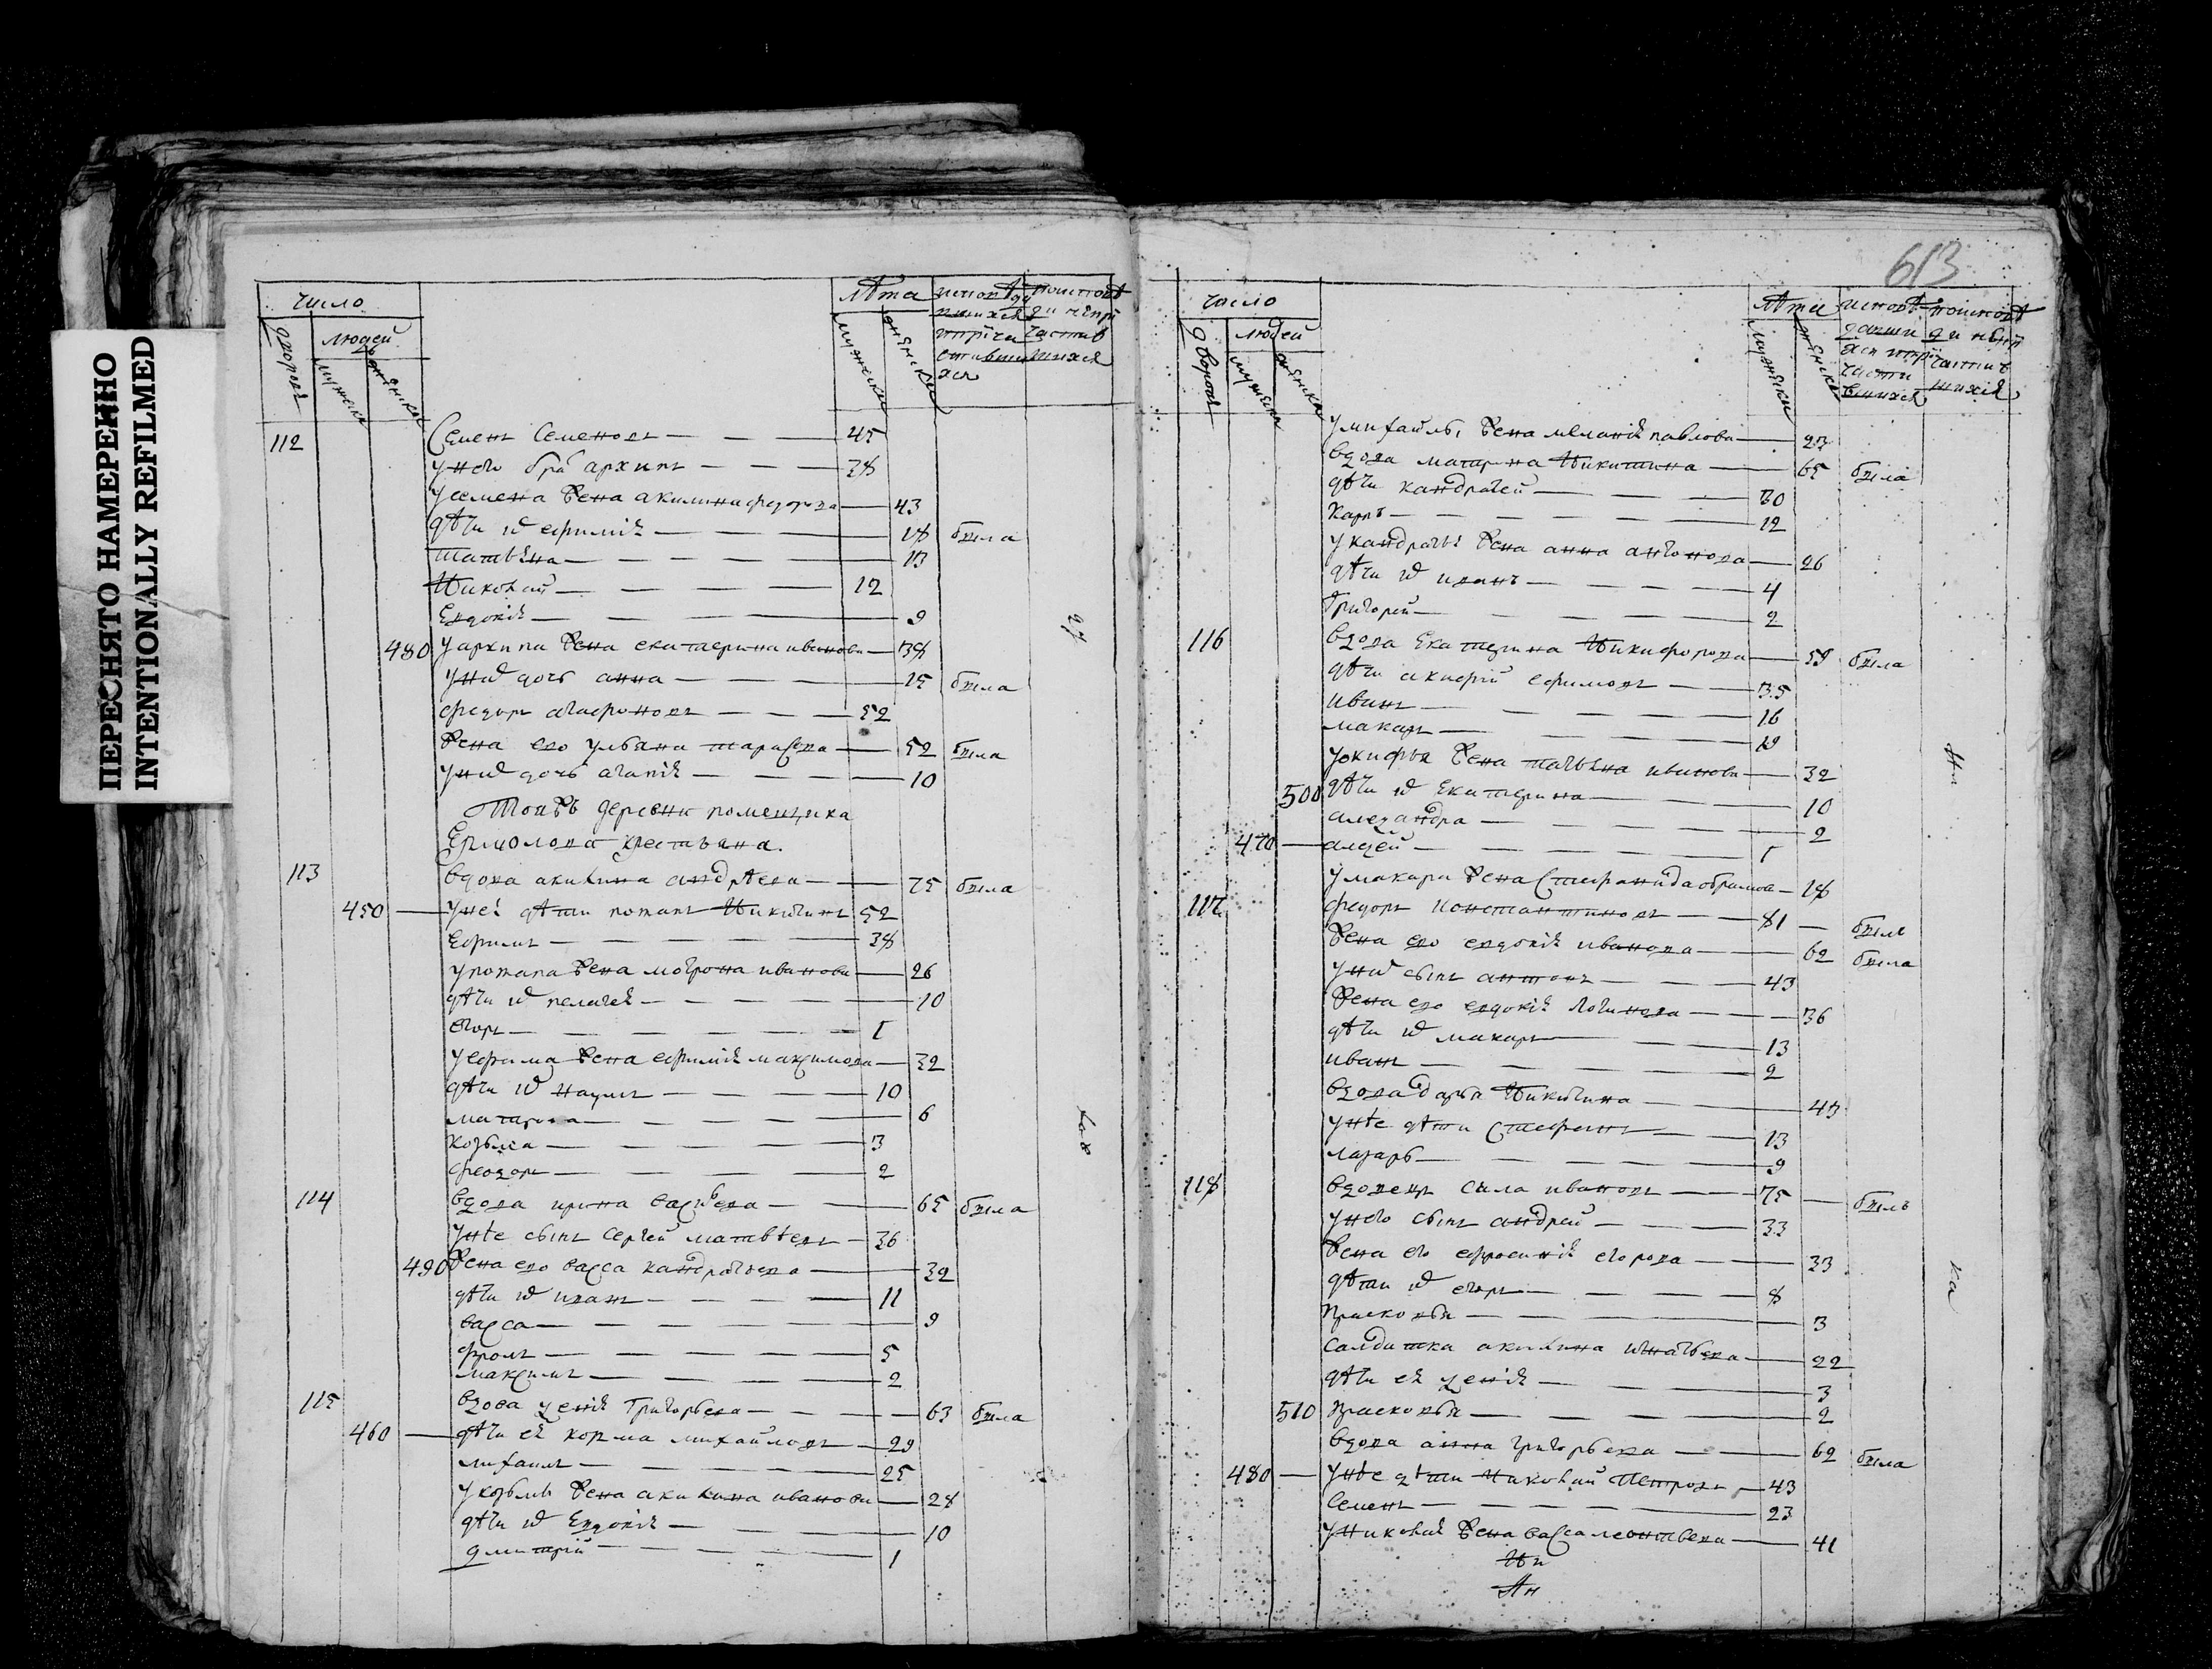 ПЕРЕСНЯТО НАМЕРЕННО
INTENTIONALLY REFILMED
число
лѣта
людей
дворовъ
мужеска
женска
мужеска
женска
112 Семенъ Семеновъ 45
у него братъ архипъ 38
у семена жена акилина федорова 43
дѣти их ефимія 18 была
татьяна 13
Николай 12
Евдокія 9
480 у архипа жена екатерина иванова 38
у них дочь анна 15 была
федоръ агафоновъ 52
жена ево ульяна тарасова 52 была
у них дочь агапія 10
Тояжъ деревни помещика
Ермолова крестьяна.
113 вдова акилина андрѣева 75 была
450 у неі дѣти романъ Никитинъ 52
ефимъ 38
у романа жена матрона иванова 26
дѣти их пелагея 10
егоръ 1
у ефима жена ефимія максимова 32
дѣти их наумъ 10
матрона 6
козьма 3
феодоръ 2
114 вдова ирина васильева 65 была
у нѣе сынъ сергей матвѣевъ 36
490 жена ево васса кандратьева 32
дѣти их иванъ 11
васса 9
фролъ 5
максимъ 2
115 вдова ксенія Григорьева 63 была
460 дѣти ея козма михайловъ 29
михаилъ 25
у козьмы жена акилина иванова 28
дѣти их Евдокія 10
дмитрій 1
613
число
лѣта
людей
дворовъ
мужеска
женска
мужеска
женска
у михаилы жена меланія павлова 23
вдова матрона Никитина 65 была
дѣти кандратей 30
карпъ 12
у кандратья жена анна антонова 26
дѣти их иванъ 4
григорей 2
116 вдова Екатерина Никифорова 59 была
дѣти акифій ефимовъ 35
иванъ 16
макаръ 19
у окифья жена татьяна иванова 32
500 дѣти их Екатерина 10
алезандра 2
470 алезей 1
у макара жена Стефанида абрамова 18
117 федоръ Константиновъ 81 былъ
жена ево евдокія иванова 62 была
у них сынъ антонъ 43
жена ево евдокія логинова 36
дѣти их макаръ 13
иванъ 2
вдова дарья Никитина 43
у нѣе дѣти Стефанъ 13
лазарь 9
118 вдовецъ сила ивановъ 75 былъ
у него сынъ андрей 33
жена его ефросинія егорова 33
дѣти их егоръ 8
Прасковья 3
салдатка акилина игнатьева 22
дѣти ея ксенія 3
510 Прасковья 2
вдова анна григорьева 62 была
480 у нѣе дѣти Николай Петровъ 43
Семенъ 23
у николая жена васса леонтьева 41